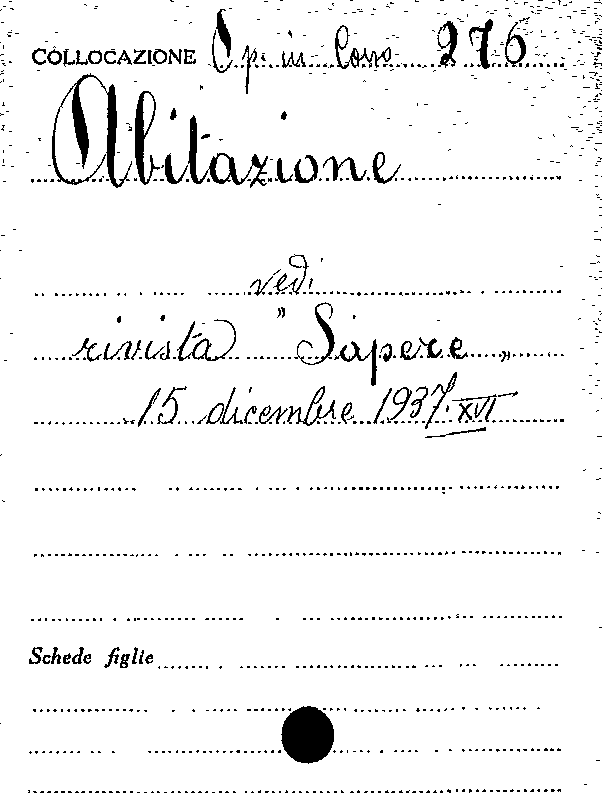 COLLOCAZIONE Op. in Corso 276
Abitazione
vedi
rivista "Sapere"
15 dicembre 1937. XVI
Schede figlie